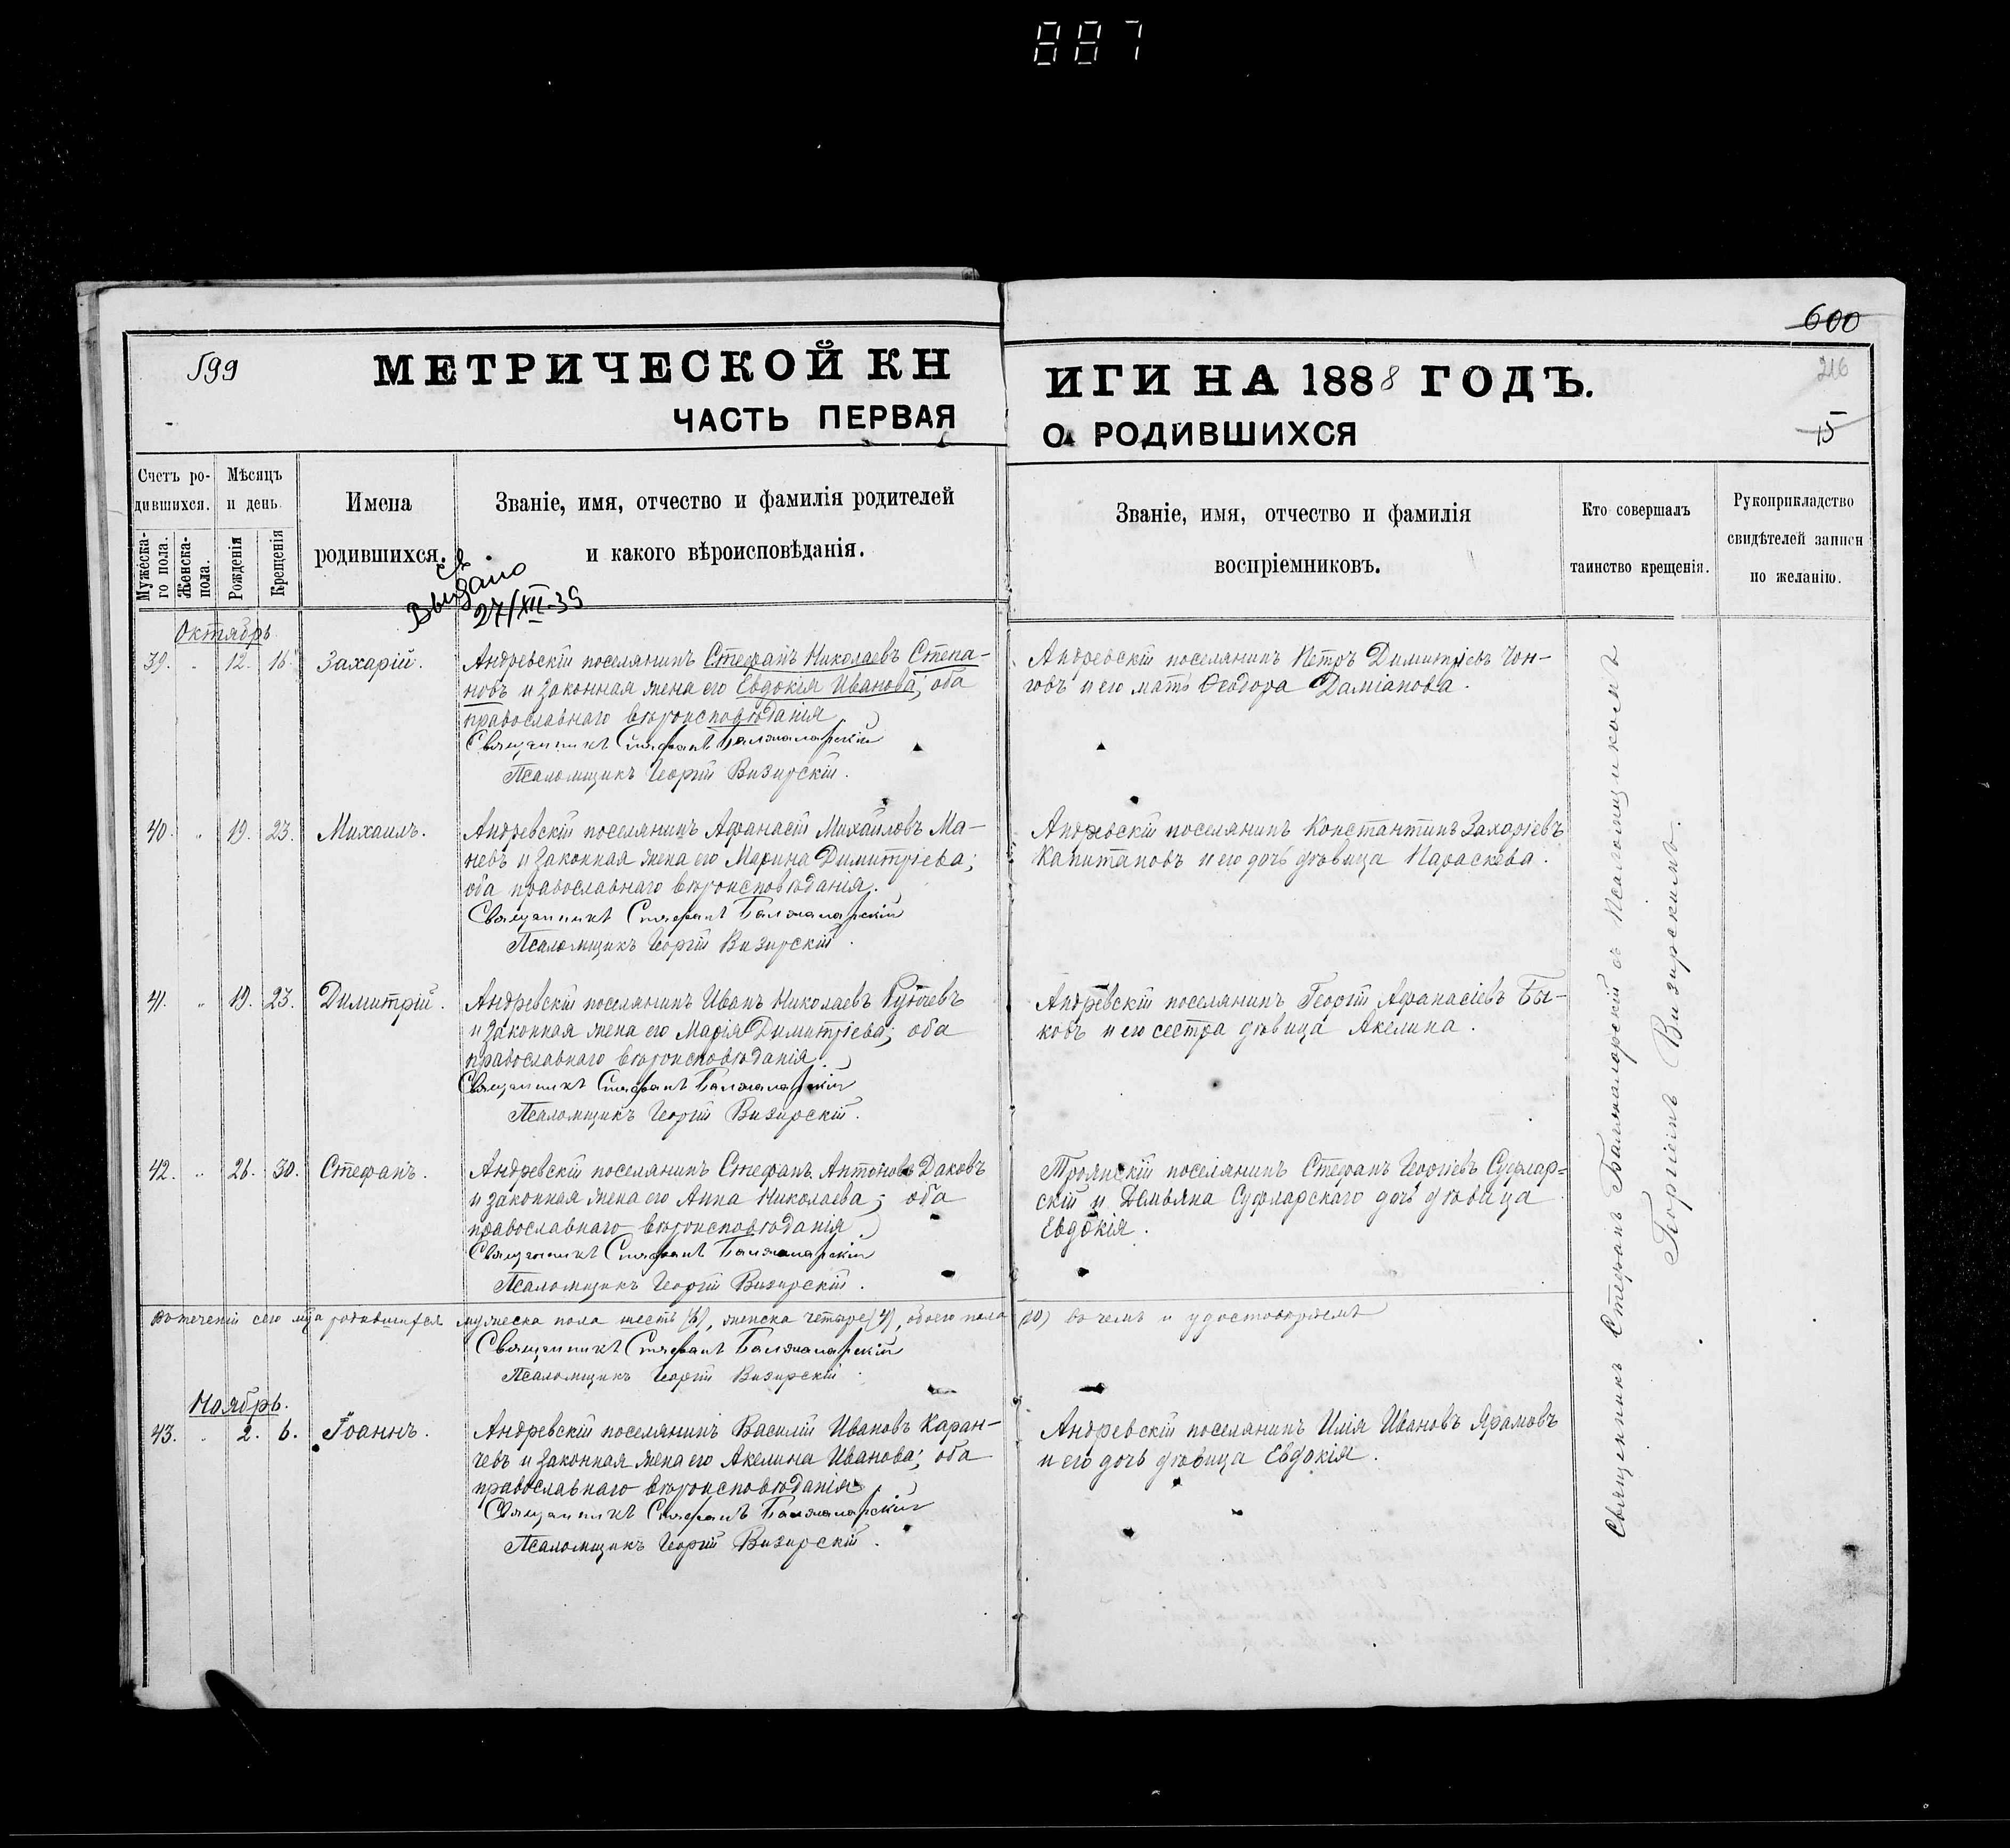 887
600
599
МЕТРИЧЕСКОЙ КН
ИГИ НА 1888 ГОДЪ.
216
ЧАСТЬ ПЕРВАЯ
О РОДИВШИХСЯ
15
Счетъ ро-
дившихся.
Мужеска-
го пола.
Женска-
пола.
Мѣсяцъ
и день.
Рожденія
Крещенія
Имена
родившихся.
Званіе, имя, отчество и фамилія родителей
и какого вѣроисповѣданія.
Званіе, имя, отчество и фамилія
воспріемниковъ.
Кто совершалъ
таинство крещенія.
Рукоприкладство
свидѣтелей записи
по желанію.
Выдано
27/XII-39
Октябрь
39. " 12. 16. Захарій.
Андреевскій поселянинъ Стефанъ Николаевъ Степа-
новъ и законная жена его Евдокія Иванова; оба
православнаго вѣроисповѣданія
Священникъ Стефанъ Балжаларскій
Псаломщикъ Георгій Визирскій.
Андреевскій поселянинъ Петръ Димитріевъ Чон-
говъ и его мать Ѳеодора Даміанова.
40. " 19. 23. Михаилъ.
Андреевскій поселянинъ Афанасій Михайловъ Ма-
невъ и законная жена его Марина Димитріева;
оба православнаго вѣроисповѣданія.
Священникъ Стефанъ Балжаларскій
Псаломщикъ Георгій Визирскій.
Андреевскій поселянинъ Константинъ Захаріевъ
Капитановъ и его дочь дѣвица Параскева.
41. " 19. 23. Димитрій.
Андреевскій поселянинъ Иванъ Николаевъ
и законная жена его Марія Димитріева; оба
православнаго вѣроисповѣданія.
Священникъ Стефанъ Балжаларскій
Псаломщикъ Георгій Визирскій.
Андреевскій поселянинъ Георгій Афанасіевъ Бы-
ковъ и его сестра дѣвица Акелина.
42. " 26. 30. Стефанъ.
Андреевскій поселянинъ Стефанъ Антоновъ Даковъ
и законная жена его Анна Николаева; оба
православнаго вѣроисповѣданія.
Священникъ Стефанъ Балжаларскій
Псаломщикъ Георгій Визирскій.
Троянскій поселянинъ Стефанъ Георгіевъ Суфлар-
скій и Демьяна Суфларскаго дочь дѣвица
Евдокія.
Въ теченіи сего м-ца родившихся мужеска пола шесть (6), женска четыре (4), обоего пола (10) въ чемъ и удостовѣряемъ
Священникъ Стефанъ Балжаларскій
Псаломщикъ Георгій Визирскій.
Ноябрь.
43. " 2. 6. Іоаннъ.
Андреевскій поселянинъ Василій Ивановъ Каран-
чевъ и законная жена его Акелина Иванова; оба
православнаго вѣроисповѣданія
Священникъ Стефанъ Балжаларскій
Псаломщикъ Георгій Визирскій.
Андреевскій поселянинъ Илія Ивановъ Ярамовъ
и его дочь дѣвица Евдокія.
Священникъ Стефанъ Балжаларскій съ Псаломщикомъ
Георгіемъ Визирскимъ.